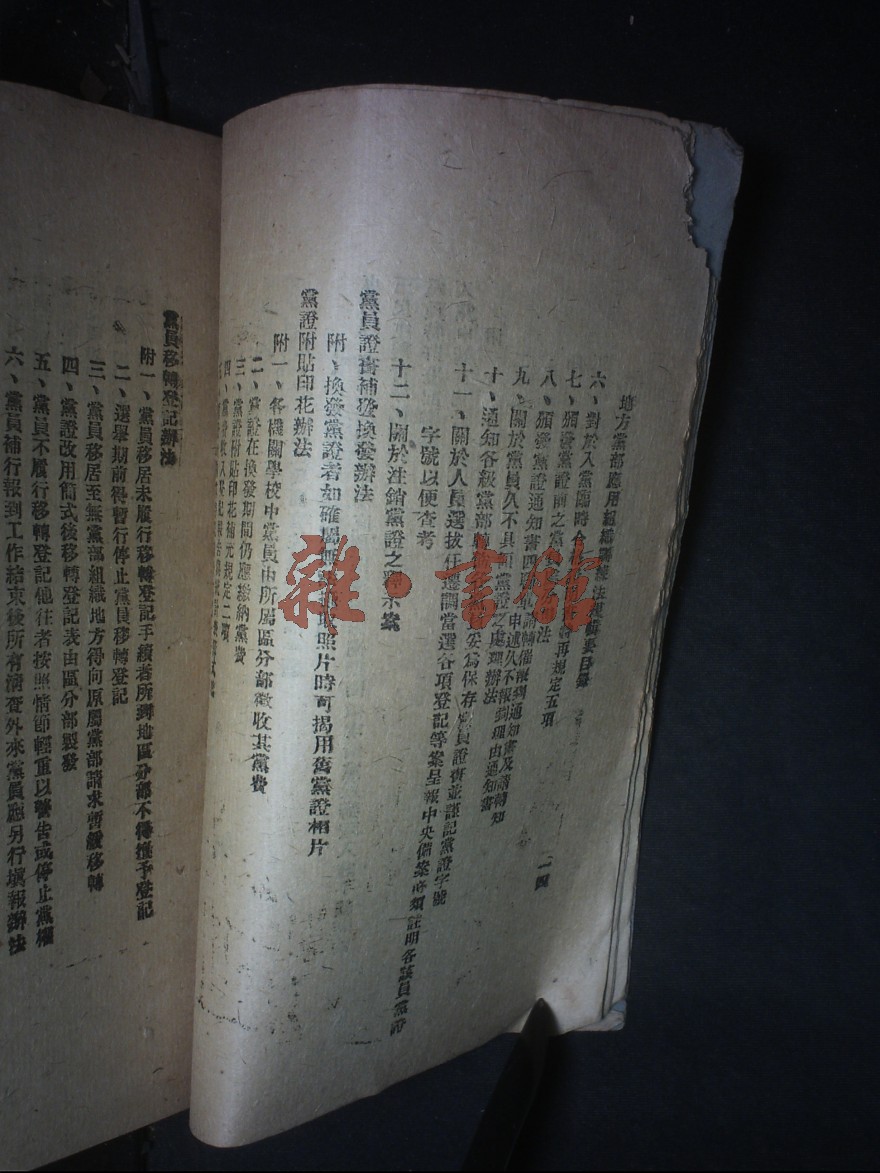 地方黨部應用組織訓練法規輯要目錄
二四
六、對於入黨臨時
七、頒發黨證前之黨 再規定五項
八、頒發黨證通知書四 法
九、關於黨員久不具領黨證之處理辦法
十、通知各級黨部 妥爲保存黨員證書並謹記黨證字號
十一、關於人員選拔任遷調當選各項登記等案呈報中央備案時須註明各該員黨證
字號以便查考
十二、關於注銷黨證之 示案
黨員證書補發換發辦法
附、換發黨證者如確屬無 照片時可揭用舊黨證相片
黨證附貼印花辦法
附一、各機關學校中黨員由所屬區分部徵收其黨費
二、黨證在換發期間仍應繳納黨費
三、黨證附貼印花補充規定二項
四、
黨員移轉登記辦法
附一、黨員移居未履行移轉登記手續者所到地區分部不得准予登記
二、選舉期前得暫行停止黨員移轉登記
三、黨員移居至無黨部組織地方得向原屬黨部請求暫緩移轉
四、黨證改用簡式後移轉登記表由區分部製發
五、黨員不履行移轉登記他往者按照情節輕重以警告或停止黨權
六、黨員補行報到工作結束後所有清查外來黨員應另行填報辦法
雜·書館